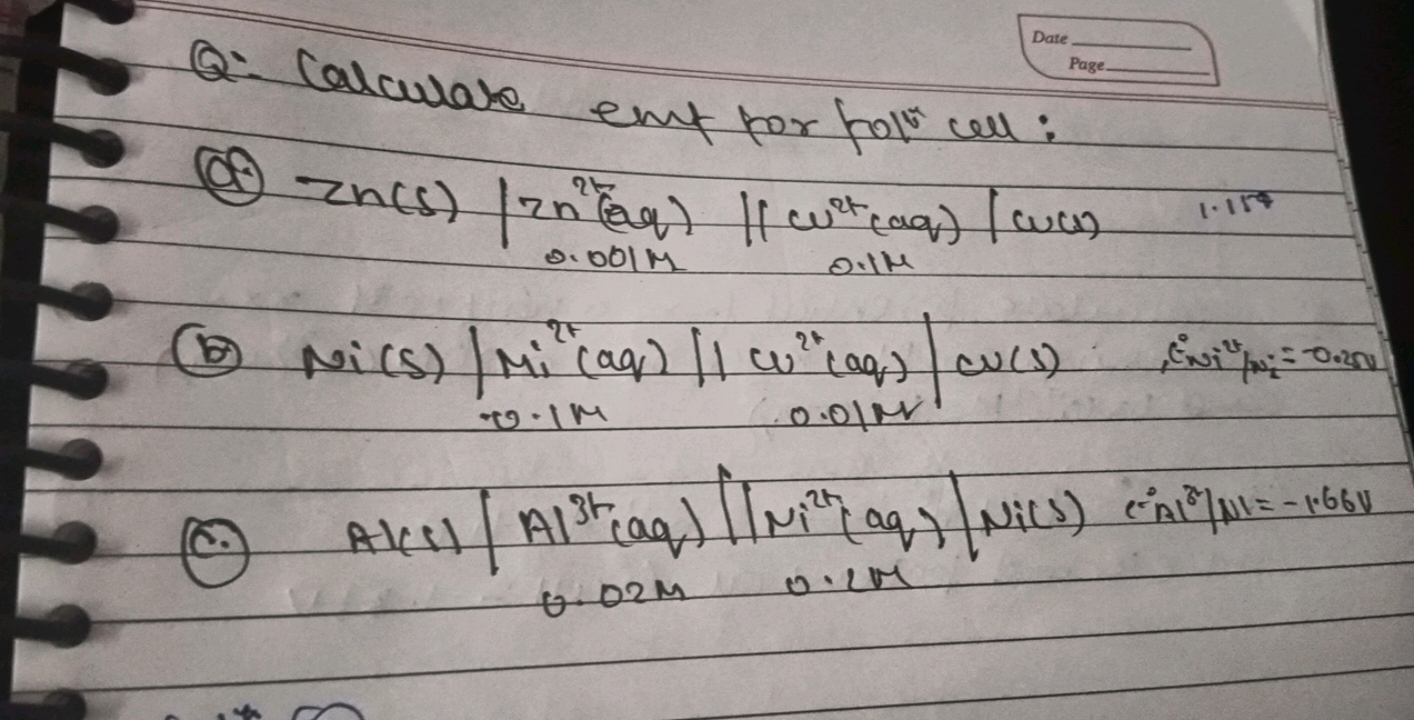 Date
Page
Q:- Calculate emf for folw cell :
(a) Zn(s) | Zn2+(aq) || Cu2+(aq) | Cu(s)
0.001M 0.1M
(b) Ni(s) | Ni2+(aq) || Cu2+(aq) | Cu(s) , E°Ni2+/Ni = -0.25V
0.1M 0.01M
(c.) Al(s) | Al3+(aq) || Ni2+(aq) | Ni(s) E°Al3+/Al = -1.66V
0.02M